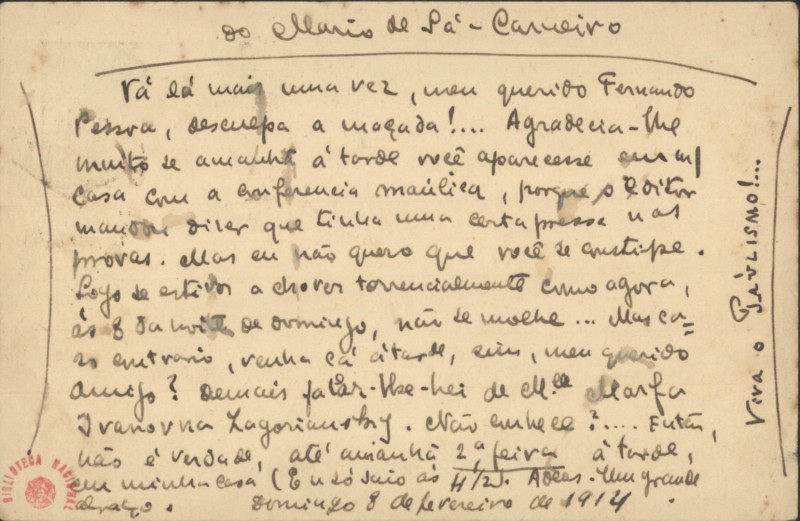 do Mario de Sá-Carneiro
Vá lá mais uma vez, meu querido Fernando
Pessoa, desculpa a maçada!... Agradecia-lhe
muito se amanhã á tarde você aparecesse em m/
casa com a conferencia maúlica, porque o Editor
mandou dizer que tinha uma certa pressa nas
provas. Mas eu não quero que você se constipe.
Logo se estiver a chover torrencialmente como agora,
ás 8 da noite de domingo, não se molhe... Mas ca=
so contrario, venha cá á tarde, sim, meu querido
Amigo? Demais falar-lhe-hei de M.lle Marfa
Ivanovna Zagoriansky. Não conhece?.... Então,
não é verdade, até amanhã 2ª feira á tarde,
em minha casa (Eu só saio ás 4 1/2). Adeus. Um grande
abraço. Domingo 8 de fevereiro de 1914.
Viva o PAÙLISMO!...
BIBLIOTECA NACIONAL